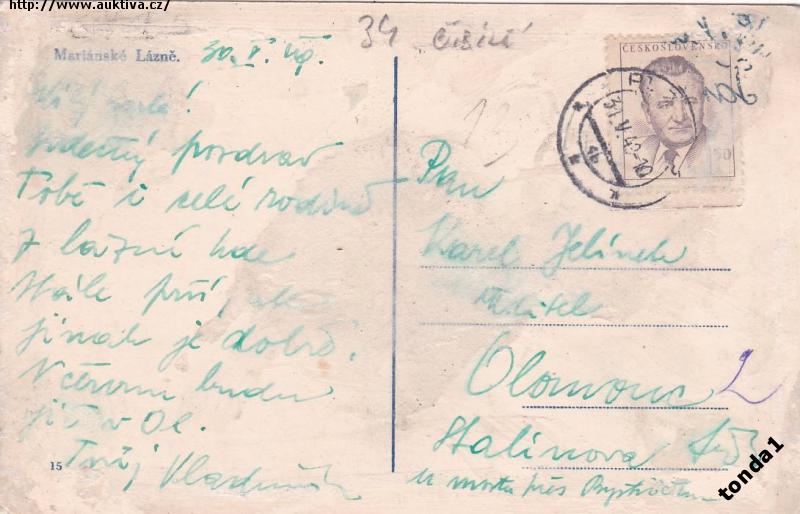 http://www.auktiva.cz/
34
Mariánské Lázně. 30. V. 49.
Milý Karle!
Srdečný pozdrav
Tobě i celé rodině
z lázní kde
stále prší, ale
jinak je dobře.
V červnu budu
již v Ol.
Tvůj
15
ČESKOSLOVENSKO
50
31.V.49-10
4b
Pan
Karel Jelínek
učitel
Olomouc 2
Stalinova
u mostu přes Bystřičku
tonda1